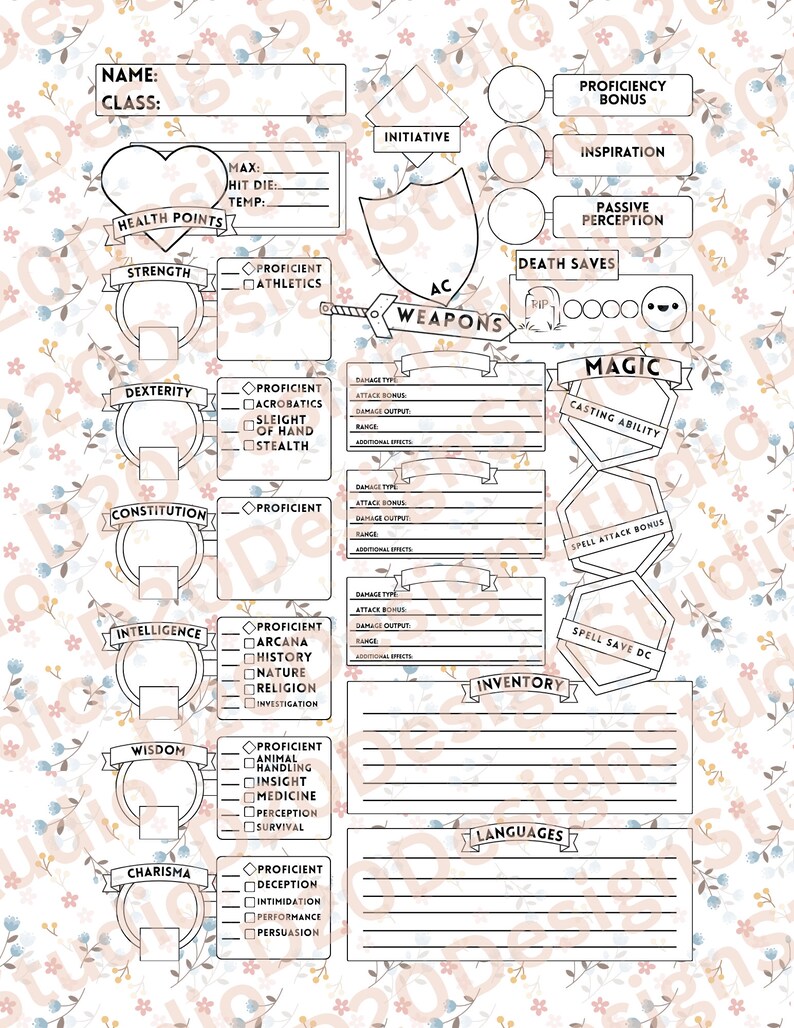 NAME:
CLASS:
MAX:
HIT DIE:
TEMP:
HEALTH POINTS
INITIATIVE
AC
PROFICIENCY
BONUS
INSPIRATION
PASSIVE
PERCEPTION
DEATH SAVES
RIP
WEAPONS
STRENGTH
PROFICIENT
ATHLETICS
DEXTERITY
PROFICIENT
ACROBATICS
SLEIGHT
OF HAND
STEALTH
CONSTITUTION
PROFICIENT
INTELLIGENCE
PROFICIENT
ARCANA
HISTORY
NATURE
RELIGION
INVESTIGATION
WISDOM
PROFICIENT
ANIMAL
HANDLING
INSIGHT
MEDICINE
PERCEPTION
SURVIVAL
CHARISMA
PROFICIENT
DECEPTION
INTIMIDATION
PERFORMANCE
PERSUASION
DAMAGE TYPE:
ATTACK BONUS:
DAMAGE OUTPUT:
RANGE:
ADDITIONAL EFFECTS:
DAMAGE TYPE:
ATTACK BONUS:
DAMAGE OUTPUT:
RANGE:
ADDITIONAL EFFECTS:
DAMAGE TYPE:
ATTACK BONUS:
DAMAGE OUTPUT:
RANGE:
ADDITIONAL EFFECTS:
MAGIC
CASTING ABILITY
SPELL ATTACK BONUS
SPELL SAVE DC
INVENTORY
LANGUAGES
D20DesignStudio D20DesignStudio